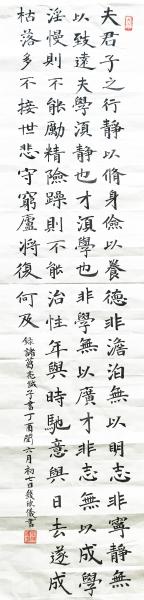 夫君子之行靜以脩身儉以養德非澹泊無以明志非寧靜無
以致遠夫學須靜也才須學也非學無以廣才非志無以成學
淫慢則不能勵精險躁則不能治性年與時馳意與日去遂成
枯落多不接世悲守窮廬將復何及
錄諸葛亮誡子書丁酉閏六月初七日